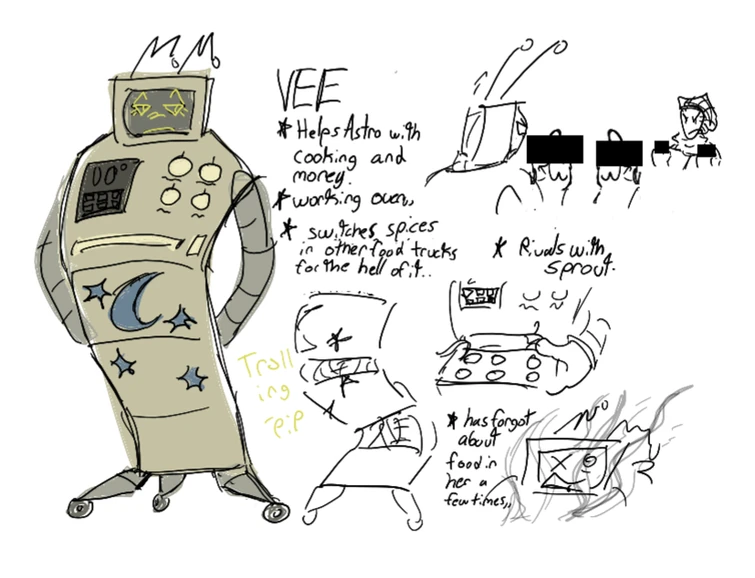 VEE
* Helps Astro with
cooking and
money.
* working oven,,
* switches spices
in other food trucks
for the hell of it..
* Rivals with
sprout.
Troll
ing
* has forgot
about
food in
her a
few times,,